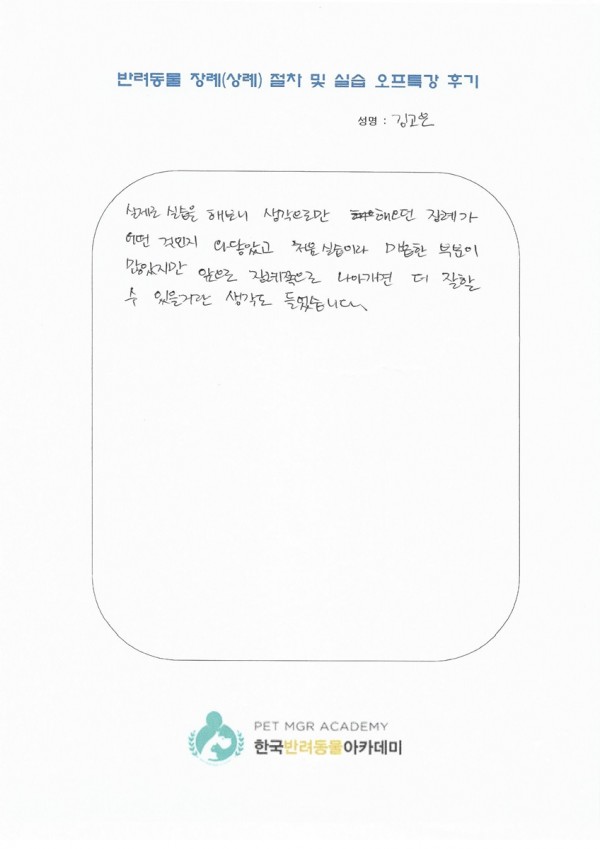 반려동물 장례(상례) 절차 및 실습 오프특강 후기
성명 : 김고은
실제로 실습을 해보니 생각으로만 해오던 장례가
어떤 것인지 와닿았고 처음 실습이라 미흡한 부분이
많았지만 앞으로 장례쪽으로 나아가면 더 잘할
수 있을거란 생각도 들었습니다.
PET MGR ACADEMY
한국반려동물아카데미